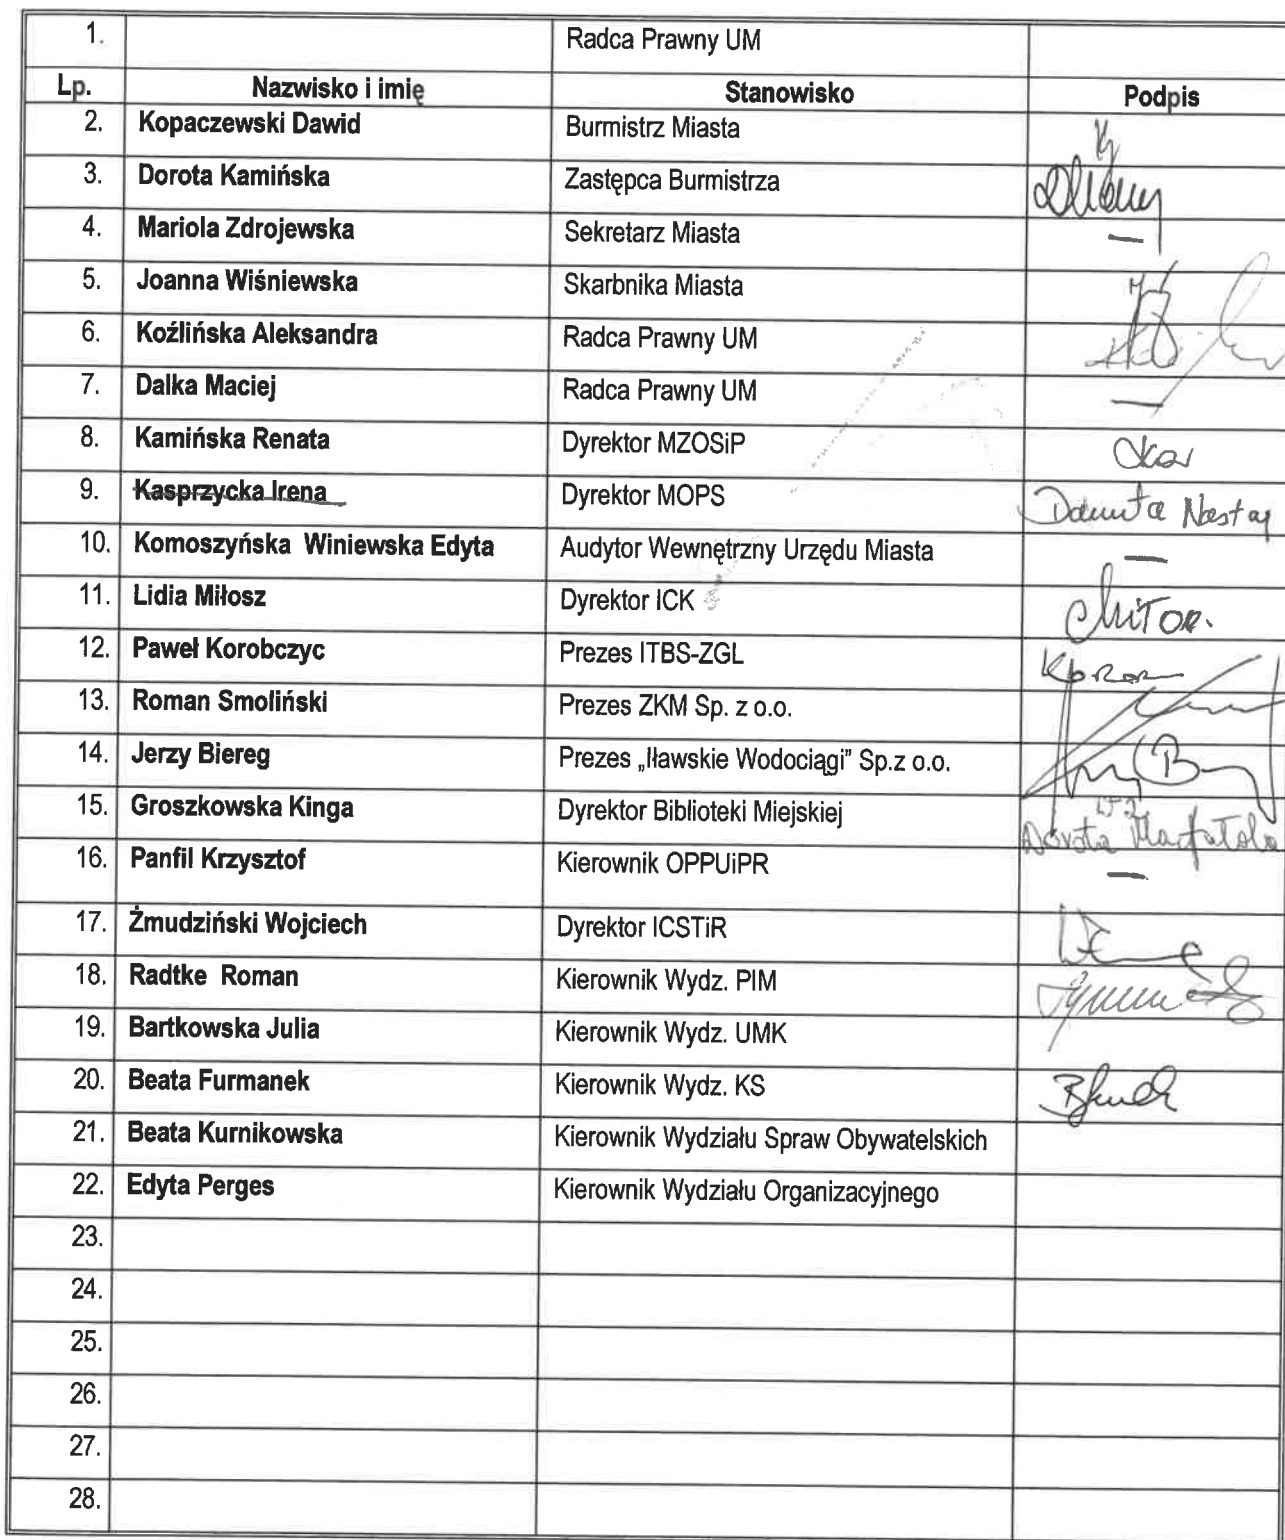 1. Radca Prawny UM
Lp. Nazwisko i imię Stanowisko Podpis
2. Kopaczewski Dawid Burmistrz Miasta
3. Dorota Kamińska Zastępca Burmistrza
4. Mariola Zdrojewska Sekretarz Miasta —
5. Joanna Wiśniewska Skarbnika Miasta
6. Koźlińska Aleksandra Radca Prawny UM
7. Dalka Maciej Radca Prawny UM —
8. Kamińska Renata Dyrektor MZOSiP
9. Kasprzycka Irena Dyrektor MOPS Danuta Nastaj
10. Komoszyńska Winiewska Edyta Audytor Wewnętrzny Urzędu Miasta —
11. Lidia Miłosz Dyrektor ICK
12. Paweł Korobczyc Prezes ITBS-ZGL
13. Roman Smoliński Prezes ZKM Sp. z o.o.
14. Jerzy Biereg Prezes „Iławskie Wodociągi” Sp.z o.o.
15. Groszkowska Kinga Dyrektor Biblioteki Miejskiej Dorota
16. Panfil Krzysztof Kierownik OPPUiPR —
17. Żmudziński Wojciech Dyrektor ICSTiR
18. Radtke Roman Kierownik Wydz. PIM
19. Bartkowska Julia Kierownik Wydz. UMK
20. Beata Furmanek Kierownik Wydz. KS
21. Beata Kurnikowska Kierownik Wydziału Spraw Obywatelskich
22. Edyta Perges Kierownik Wydziału Organizacyjnego
23.
24.
25.
26.
27.
28.